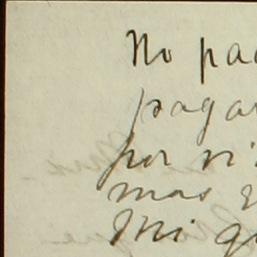 No pa
pagar
por vi
mas
Mi q